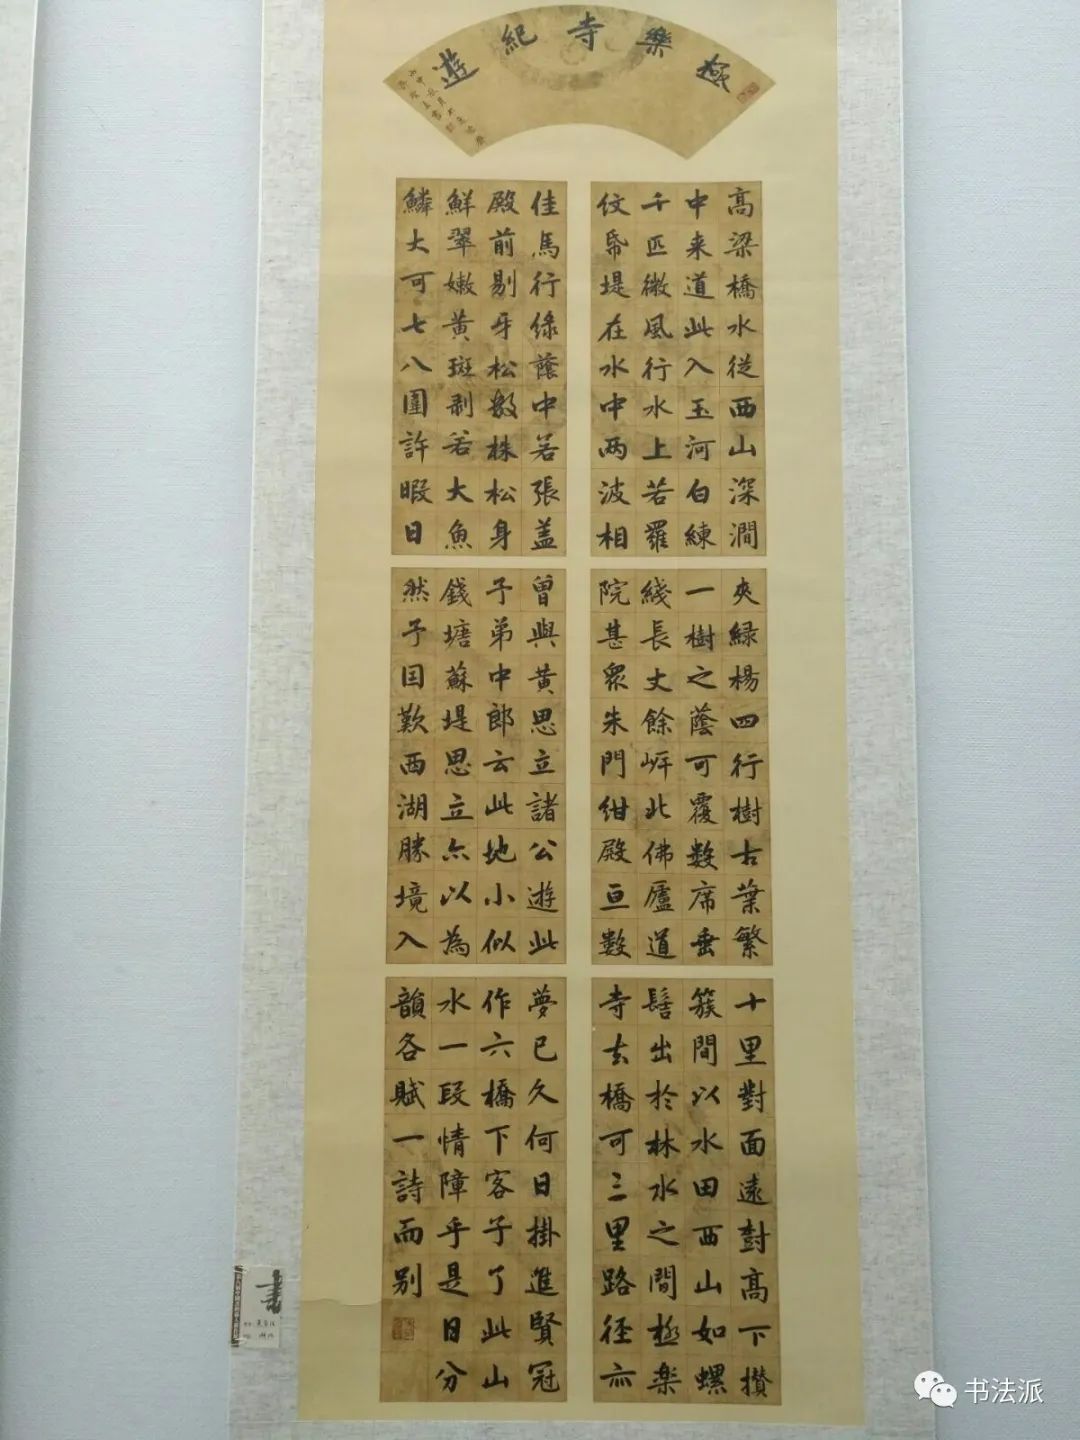 極樂寺紀遊
高梁橋水從西山深澗
中来道此入玉河白練
千匹微風行水上若羅
纹帋堤在水中两波相
夾緑楊四行樹古葉繁
一樹之蔭可覆数席垂
綫長丈餘岸北佛廬道
院甚眾朱門绀殿亘數
十里對面遠尌高下攅
簇間以水田西山如螺
髻出於林水之間極楽
寺去橋可三里路徑亦
佳馬行绿蔭中若張盖
殿前剔牙松數株松身
鮮翠嫩黄斑剥若大魚
鱗大可七八圍許暇日
曾與黄思立諸公遊此
予弟中郎云此地小似
錢塘蘇堤思立亦以為
然予因歎西湖勝境入
夢已久何日掛進賢冠
作六橋下客子了此山
水一段情障乎是日分
韻各賦一詩而别
書
书法派